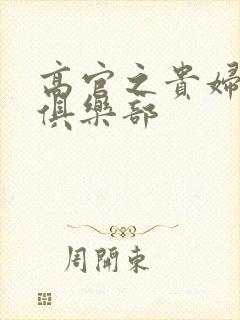 高官之貴婦
俱樂部
周開東